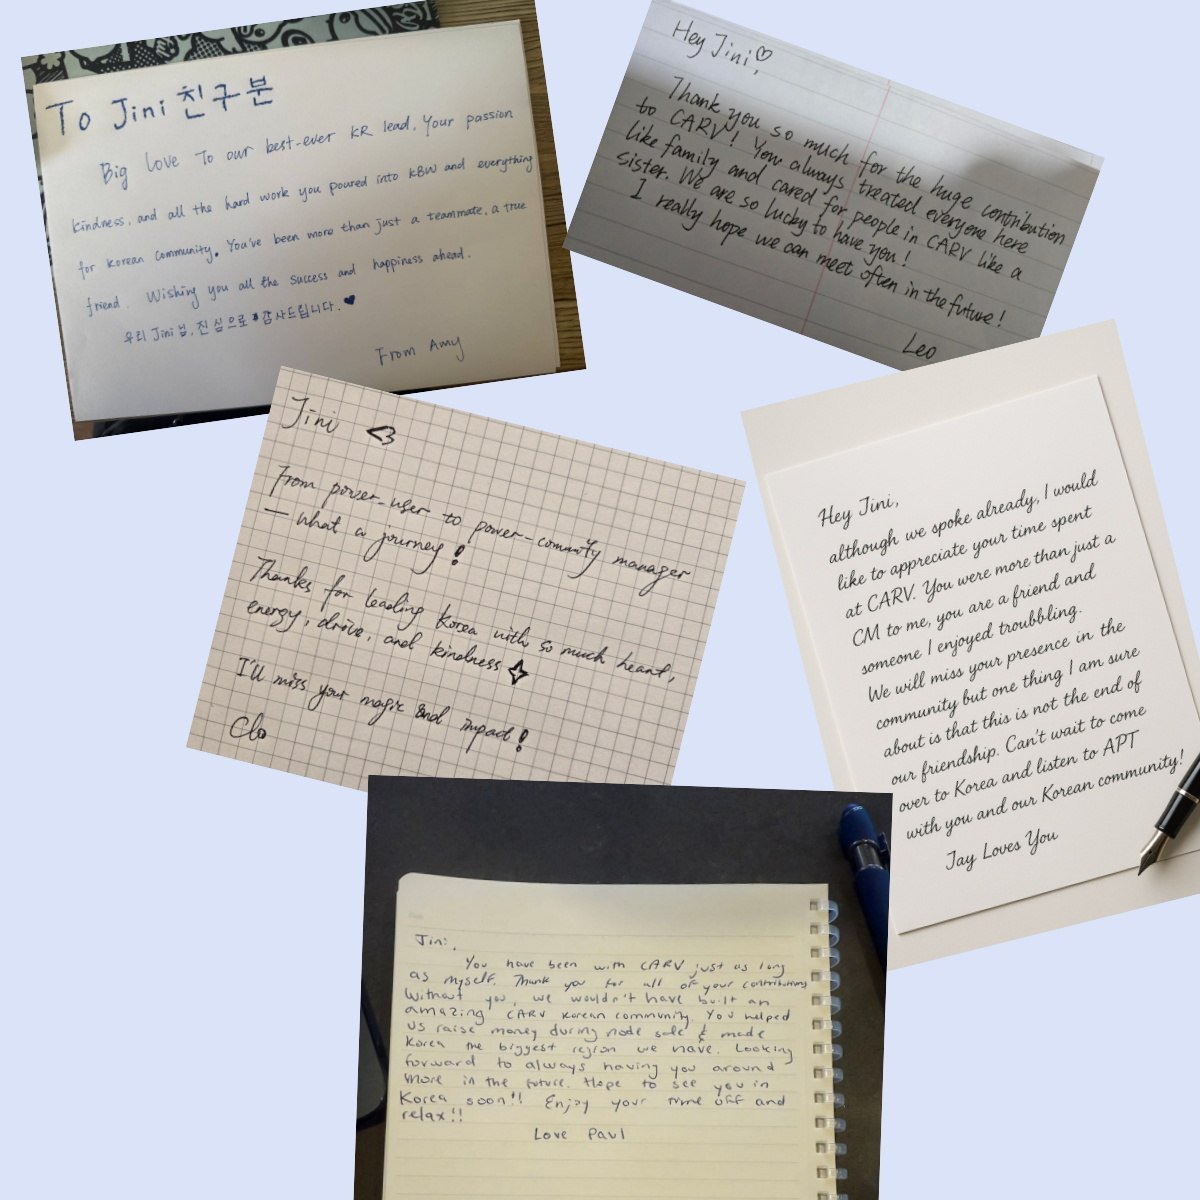 To Jini 친구분
Big love To our best-ever KR lead. Your passion
kindness, and all the hard work you poured into KBW and everything
for Korean community. You've been more than just a teammate, a true
friend. Wishing you all the success and happiness ahead.
우리 Jini님, 진심으로 감사드립니다. ♥
From Amy
Hey Jini♡,
Thank you so much for the huge contribution
to CARV! You always treated everyone here
like family and cared for people in CARV like a
sister. We are so lucky to have you!
I really hope we can meet often in the future!
Leo
Jini <3
From power-user to power-commity manager
— what a journey!
Thanks for leading Korea with so much heart,
energy, drive, and kindness
I'll miss your magic and impact!
Clo
Hey Jini,
although we spoke already, I would
like to appreciate your time spent
at CARV. You were more than just a
CM to me, you are a friend and
someone I enjoyed troubbling.
We will miss your presence in the
community but one thing I am sure
about is that this is not the end of
our friendship. Can't wait to come
over to Korea and listen to APT
with you and our Korean community!
Jay Loves You
Jini,
You have been with CARV just as long
as myself. Thank you for all of your contributions
Without you, we wouldn't have built an
amazing CARV Korean community. You helped
us raise money during node sale & made
Korea the biggest region we have. Looking
forward to always having you around
more in the future. Hope to see you in
Korea soon!! Enjoy your time off and
relax!!
Love Paul